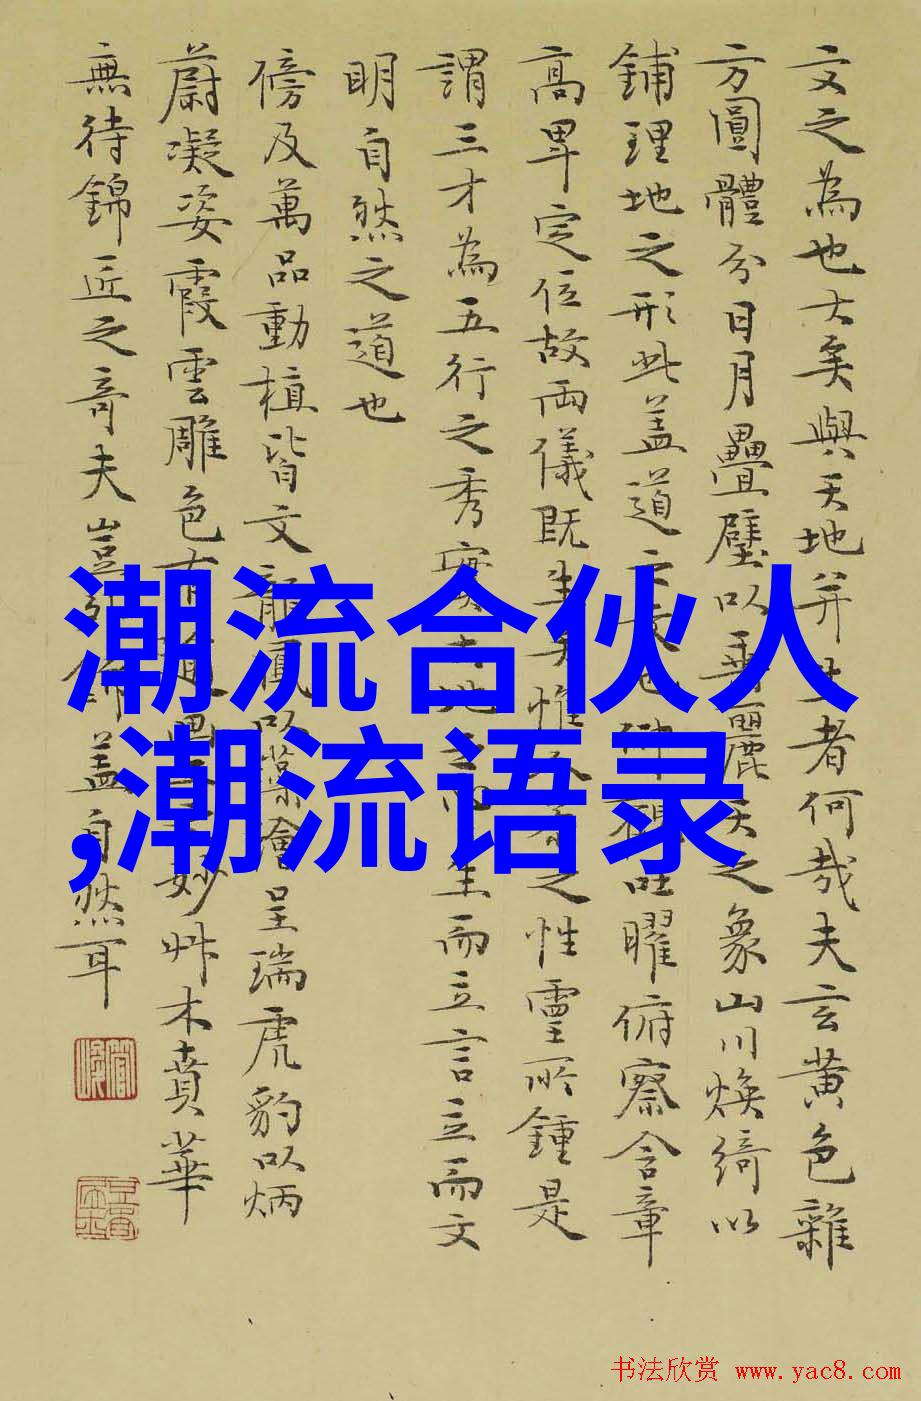 文之為也大矣與天地并生者何哉夫玄黄色雜
方圓體分日月疊璧以垂麗天之象山川焕綺以
鋪理地之形此盖道之文也仰觀吐曜俯察含章
高卑定位故兩儀既生矣惟人參之性靈所鍾是
謂三才為五行之秀實天地之心生而立言立而文
明自然之道也
傍及萬品動植皆文龍鳳以藻繪呈瑞虎豹以炳
蔚凝姿霞雲雕色有踰畫工之妙艸木賁華
無待錦匠之奇夫豈外飾盖自然耳
潮流合伙人
,潮流语录
书法欣赏 www.yac8.com